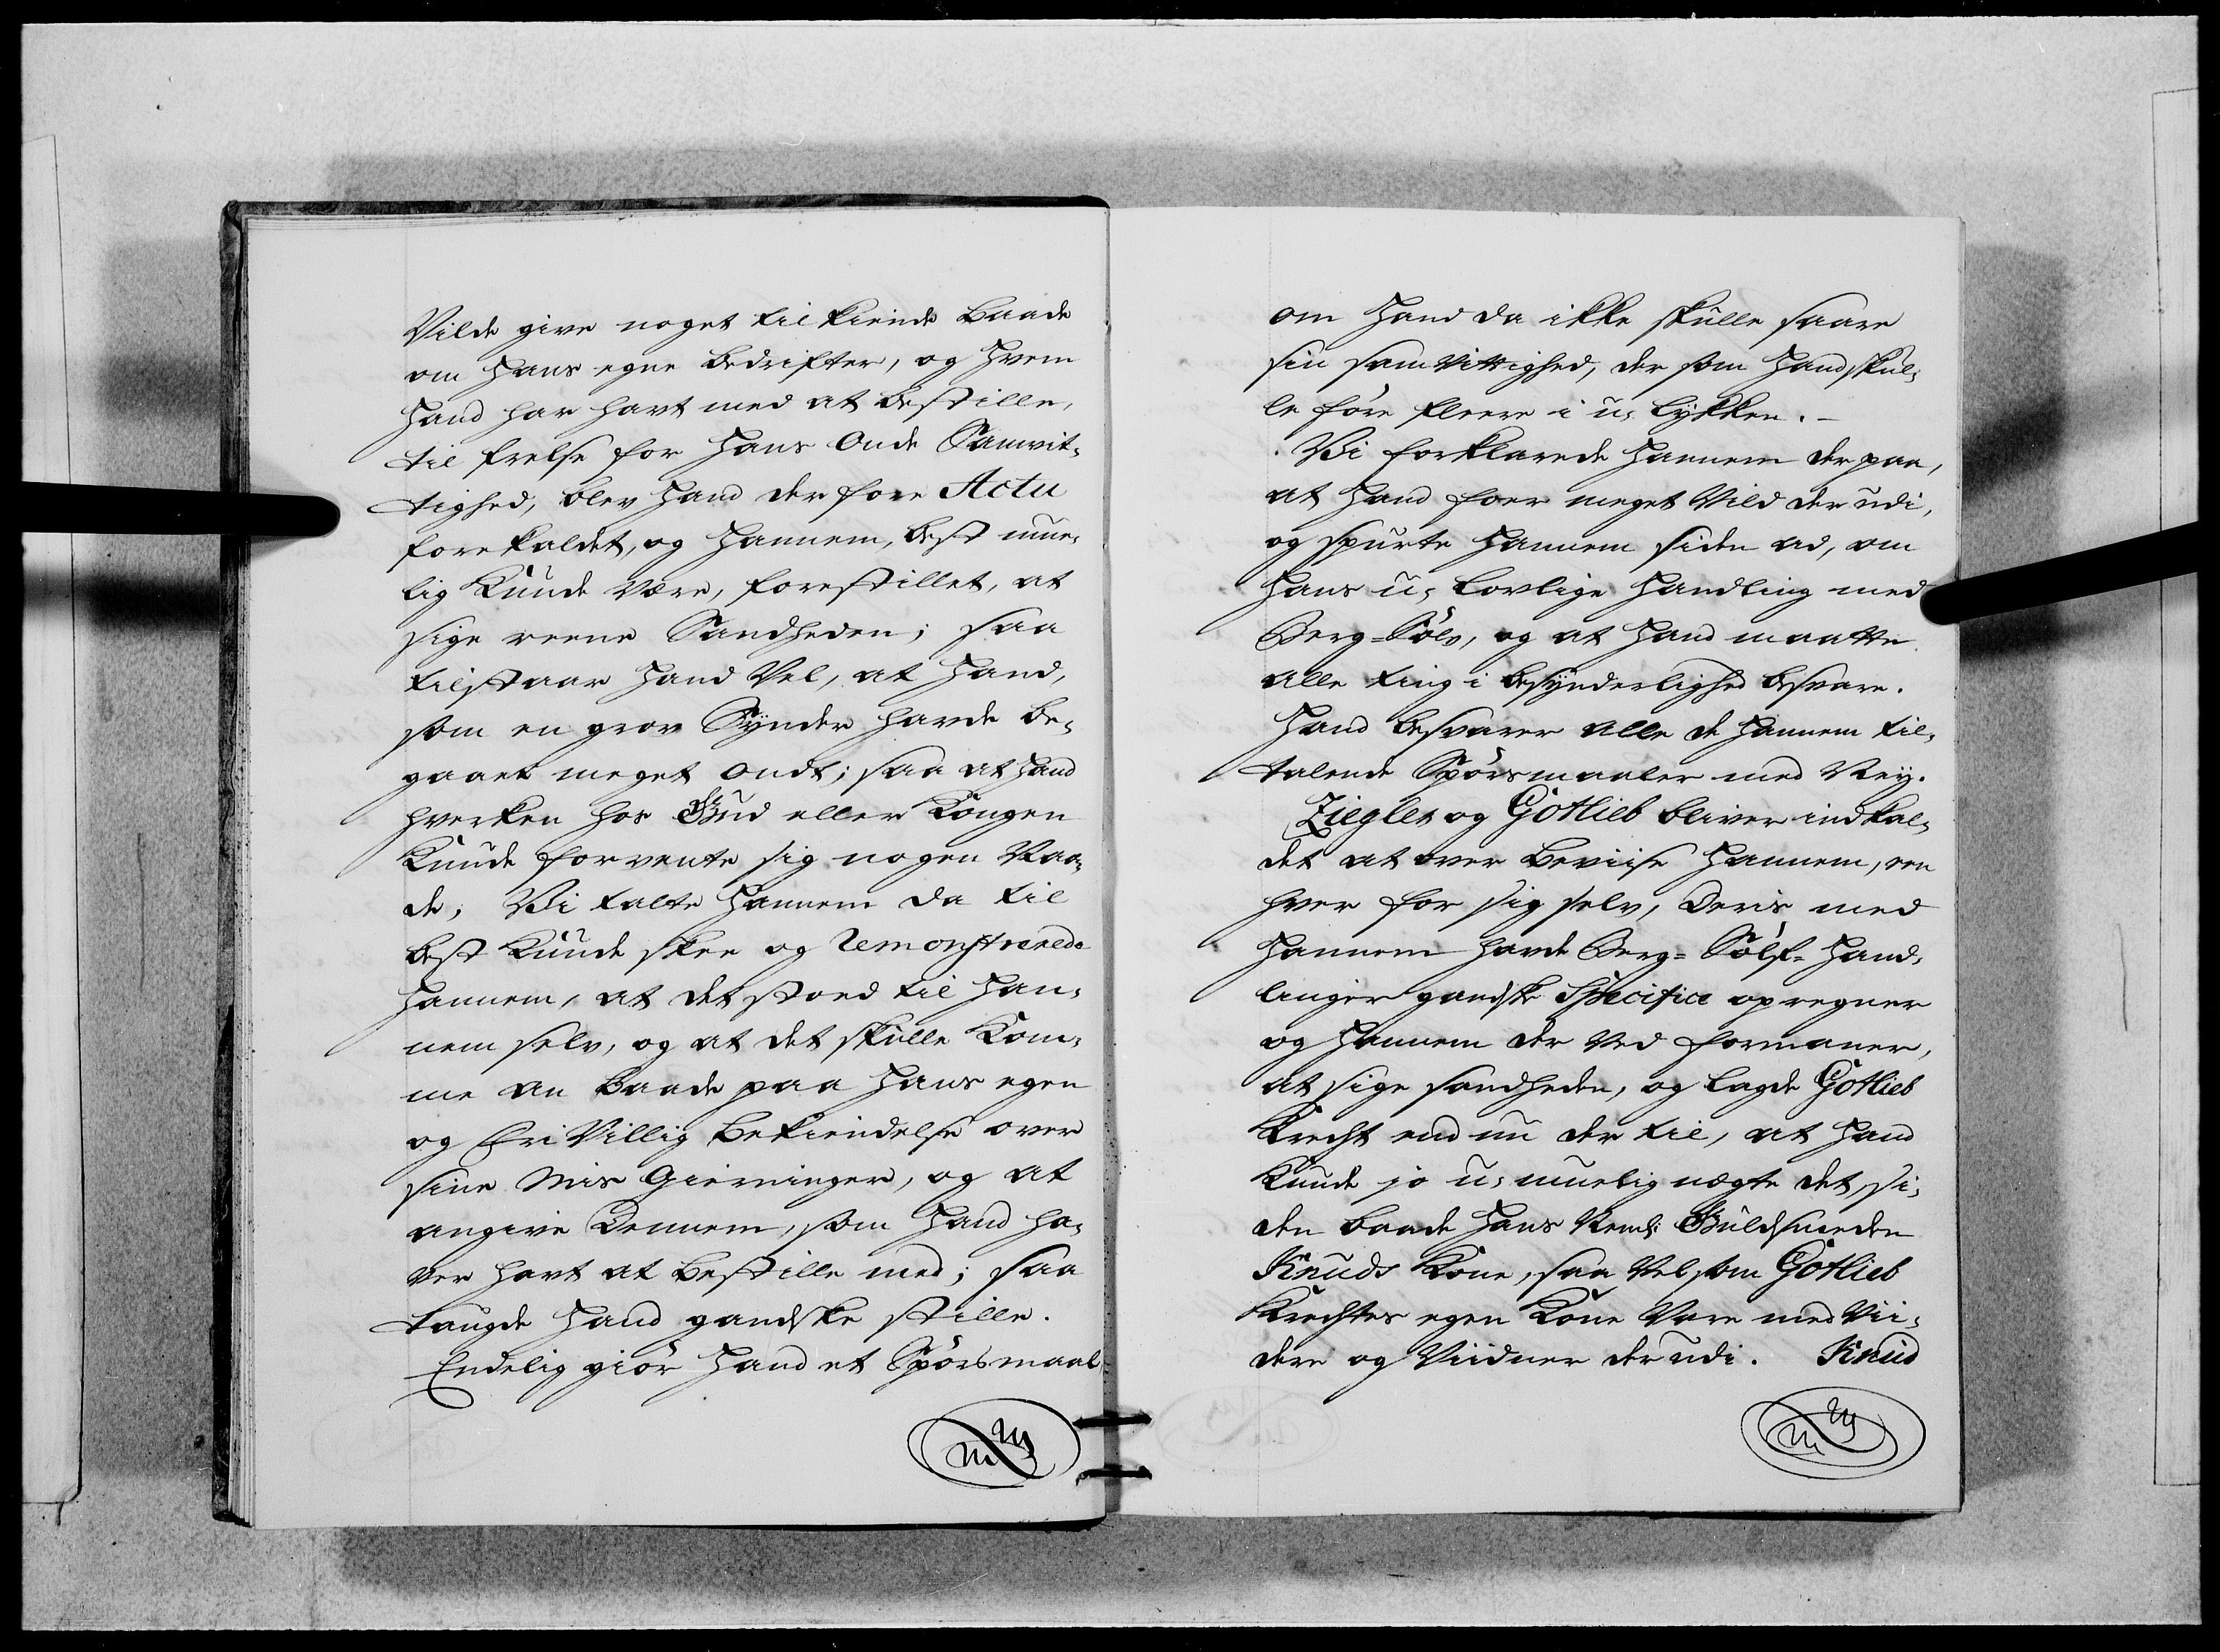 Vilde give noget til kiende baade
om Hans egne bedrifter, og Hvem
Hand har havt med at bestille,
til frelse for Hans onde Samvit-
tighed, blev Hand der fore Actu
forekaldet, og Hannem, best mue-
lig Kunde være, forestillet, at
sige reene Sandheden; saa
tilstaar Hand Vel, at Hand,
som en grov Synder havde be-
gaaet meget ondt; saa at Hand
hverken hos Gud eller Kongen
Kunde forvente sig nogen Naa-
de, Vi talte Hannem da til
best Kunde skee og remonstrerede
Hannem, at det stoed til Han-
nem selv, og at det skulle Kom-
me an baade paa Hans egen
og Fri Villig bekiendelse over
sine Mis Gierninger, og at
angive Dennem, som Hand ha-
ver havt at bestille med; saa
taugde Hand gandske stille.
Endelig giør Hand et Spørsmaal,
om Hand da ikke skulle saare
sin samvittighed, der som Hand skul-
le føre fleere i u-lykken.
Vi forklarede Hannem der paa,
at Hand foer meget Vild der udi,
og spurte Hannem siden ad, om
Hans u-lovlige Handling med
Berg-Sølv, og at Hand maatte
alle ting i besynderlighed besvare.
Hand besvarer alle de Hannem til-
talende Spørsmaaler med Ney.
Ziegler og Gotlieb bliver indkal-
det at over beviise Hannem, een
hver for sig selv, Deris med
Hannem havde Berg-Sølf-Hand-
linger gandske Specifice opregner
og Hannem der ved formaner,
at sige sandheden, og lagde Gotlieb
Krecht end nu der til, at Hand
Kunde jo u-muelig nægte det, si-
den baade Hans Neml: Guldsmeden
Knuds Kone, saa Vel som Gotlieb
Krechtes egen Kone Vare med Vii-
dere og Viidner der udi. Knud